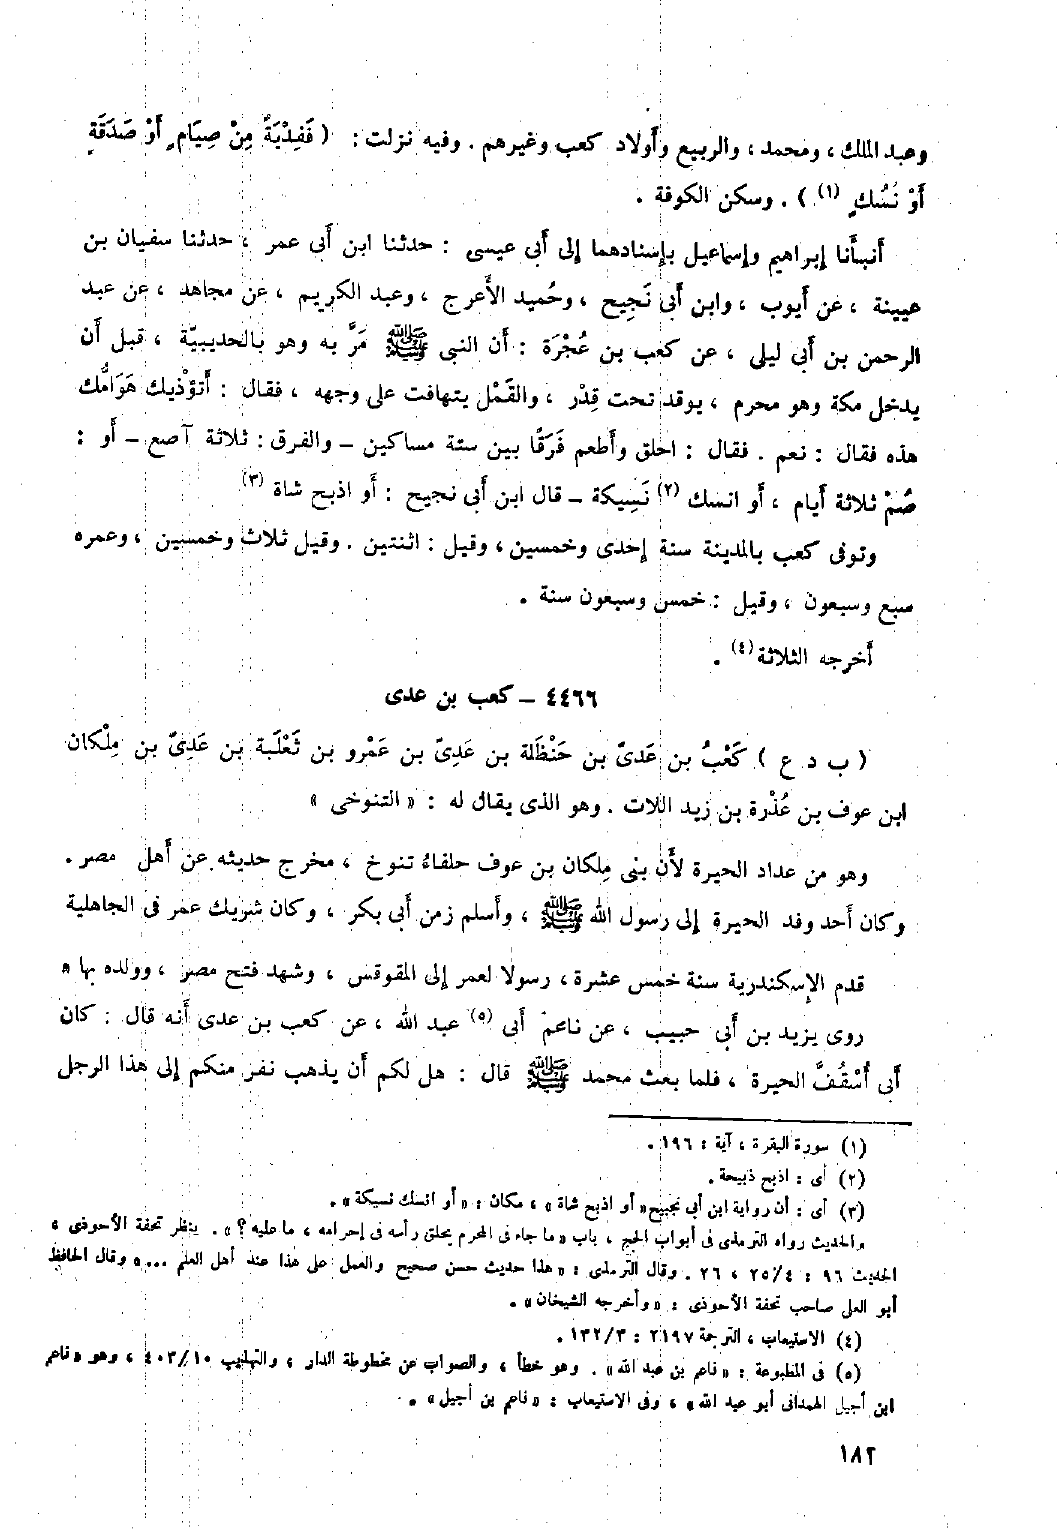 وعبد الملك ، ومحمد ، والربيع وأولاد كعب وغيرهم . وفيه نزلت : ( فَفِدْيَةٌ مِنْ صِيَامٍ أَوْ صَدَقَةٍ
أَوْ نُسُكٍ (١) ) . وسكن الكوفة .
أنبأنا إبراهيم وإسماعيل بإسنادهما إلى أبى عيسى : حدثنا ابن أبى عمر ، حدثنا سفيان بن
عيينة ، عن أيوب ، وابن أبى نَجيح ، وحُميد الأعرج ، وعبد الكريم ، عن مجاهد ، عن عبد
الرحمن بن أبى ليلى ، عن كعب بن عُجْرَة : أن النبى ﷺ مَرَّ به وهو بالحديبيّة ، قبل أن
يدخل مكة وهو محرم ، يوقد تحت قِدْر ، والقَمْل يتهافت على وجهه ، فقال : أتؤْذيك هَوَامُّك
هذه فقال : نعم . فقال : احلق وأطعم فَرَقًا بين ستة مساكين – والفرق : ثلاثة آصع – أو :
صُمْ ثلاثة أيام ، أو انسك (٢) نَسِيكة – قال ابن أبى نجيح : أو اذبح شاة (٣)
وتوفى كعب بالمدينة سنة إحدى وخمسين ، وقيل : اثنتين . وقيل ثلاث وخمسين ، وعمره
سبع وسبعون ، وقيل : خمس وسبعون سنة .
أخرجه الثلاثة (٤) .
٤٤٦٦ – كعب بن عدى
( ب د ع ) كَعْبُ بن عَدىّ بن حَنْظَلة بن عَدِىّ بن عَمْرو بن ثَعْلَبة بن عَدِىّ بن مِلْكان
ابن عوف بن عُذْرة بن زيد اللات . وهو الذى يقال له : « التنوخى »
وهو من عداد الحيرة لأن بنى مِلكان بن عوف حلفاءُ تنوخ ، مخرج حديثه عن أهل مصر .
وكان أحد وفد الحيرة إلى رسول الله ﷺ ، وأسلم زمن أبى بكر ، وكان شريك عمر فى الجاهلية
قدم الإسكندرية سنة خمس عشرة ، رسولا لعمر إلى المقوقس ، وشهد فتح مصر ، وولده بها «
روى يزيد بن أبى حبيب ، عن ناعم أبى (٥) عبد الله ، عن كعب بن عدى أنه قال : كان
أبى أُسْقُفَّ الحيرة ، فلما بعث محمد ﷺ قال : هل لكم أن يذهب نفر منكم إلى هذا الرجل
(١) سورة البقرة ، آية : ١٩٦ .
(٢) أى : اذبح ذبيحة .
(٣) أى : أن رواية ابن أبى نجيح « أو اذبح شاة » ، مكان : « أو انسك نسيكة » .
والحديث رواه الترمذى فى أبواب الحج ، باب « ما جاء فى المحرم يحلق رأسه فى إحرامه ، ما عليه ؟ » . ينظر تحفة الأحوذى ،
الحديث ٩٦ : ٢٥/٤ ، ٢٦ . وقال الترمذى : « هذا حديث حسن صحيح والعمل على هذا عند أهل العلم ... » وقال الحافظ
أبو العلى صاحب تحفة الأحوذى : « وأخرجه الشيخان » .
(٤) الاستيعاب ، الترجمة ٢١٩٧ : ١٣٢٢/٣ .
(٥) فى المطبوعة : « ناعم بن عبد الله » . وهو خطأ ، والصواب عن مخطوطة الدار ، والتهذيب ٤٠٣/١٠ ، وهو « ناعم
ابن أجيل الهمدانى أبو عبد الله » ، وفى الاستيعاب : « ناعم بن أجيل » .
١٨٢